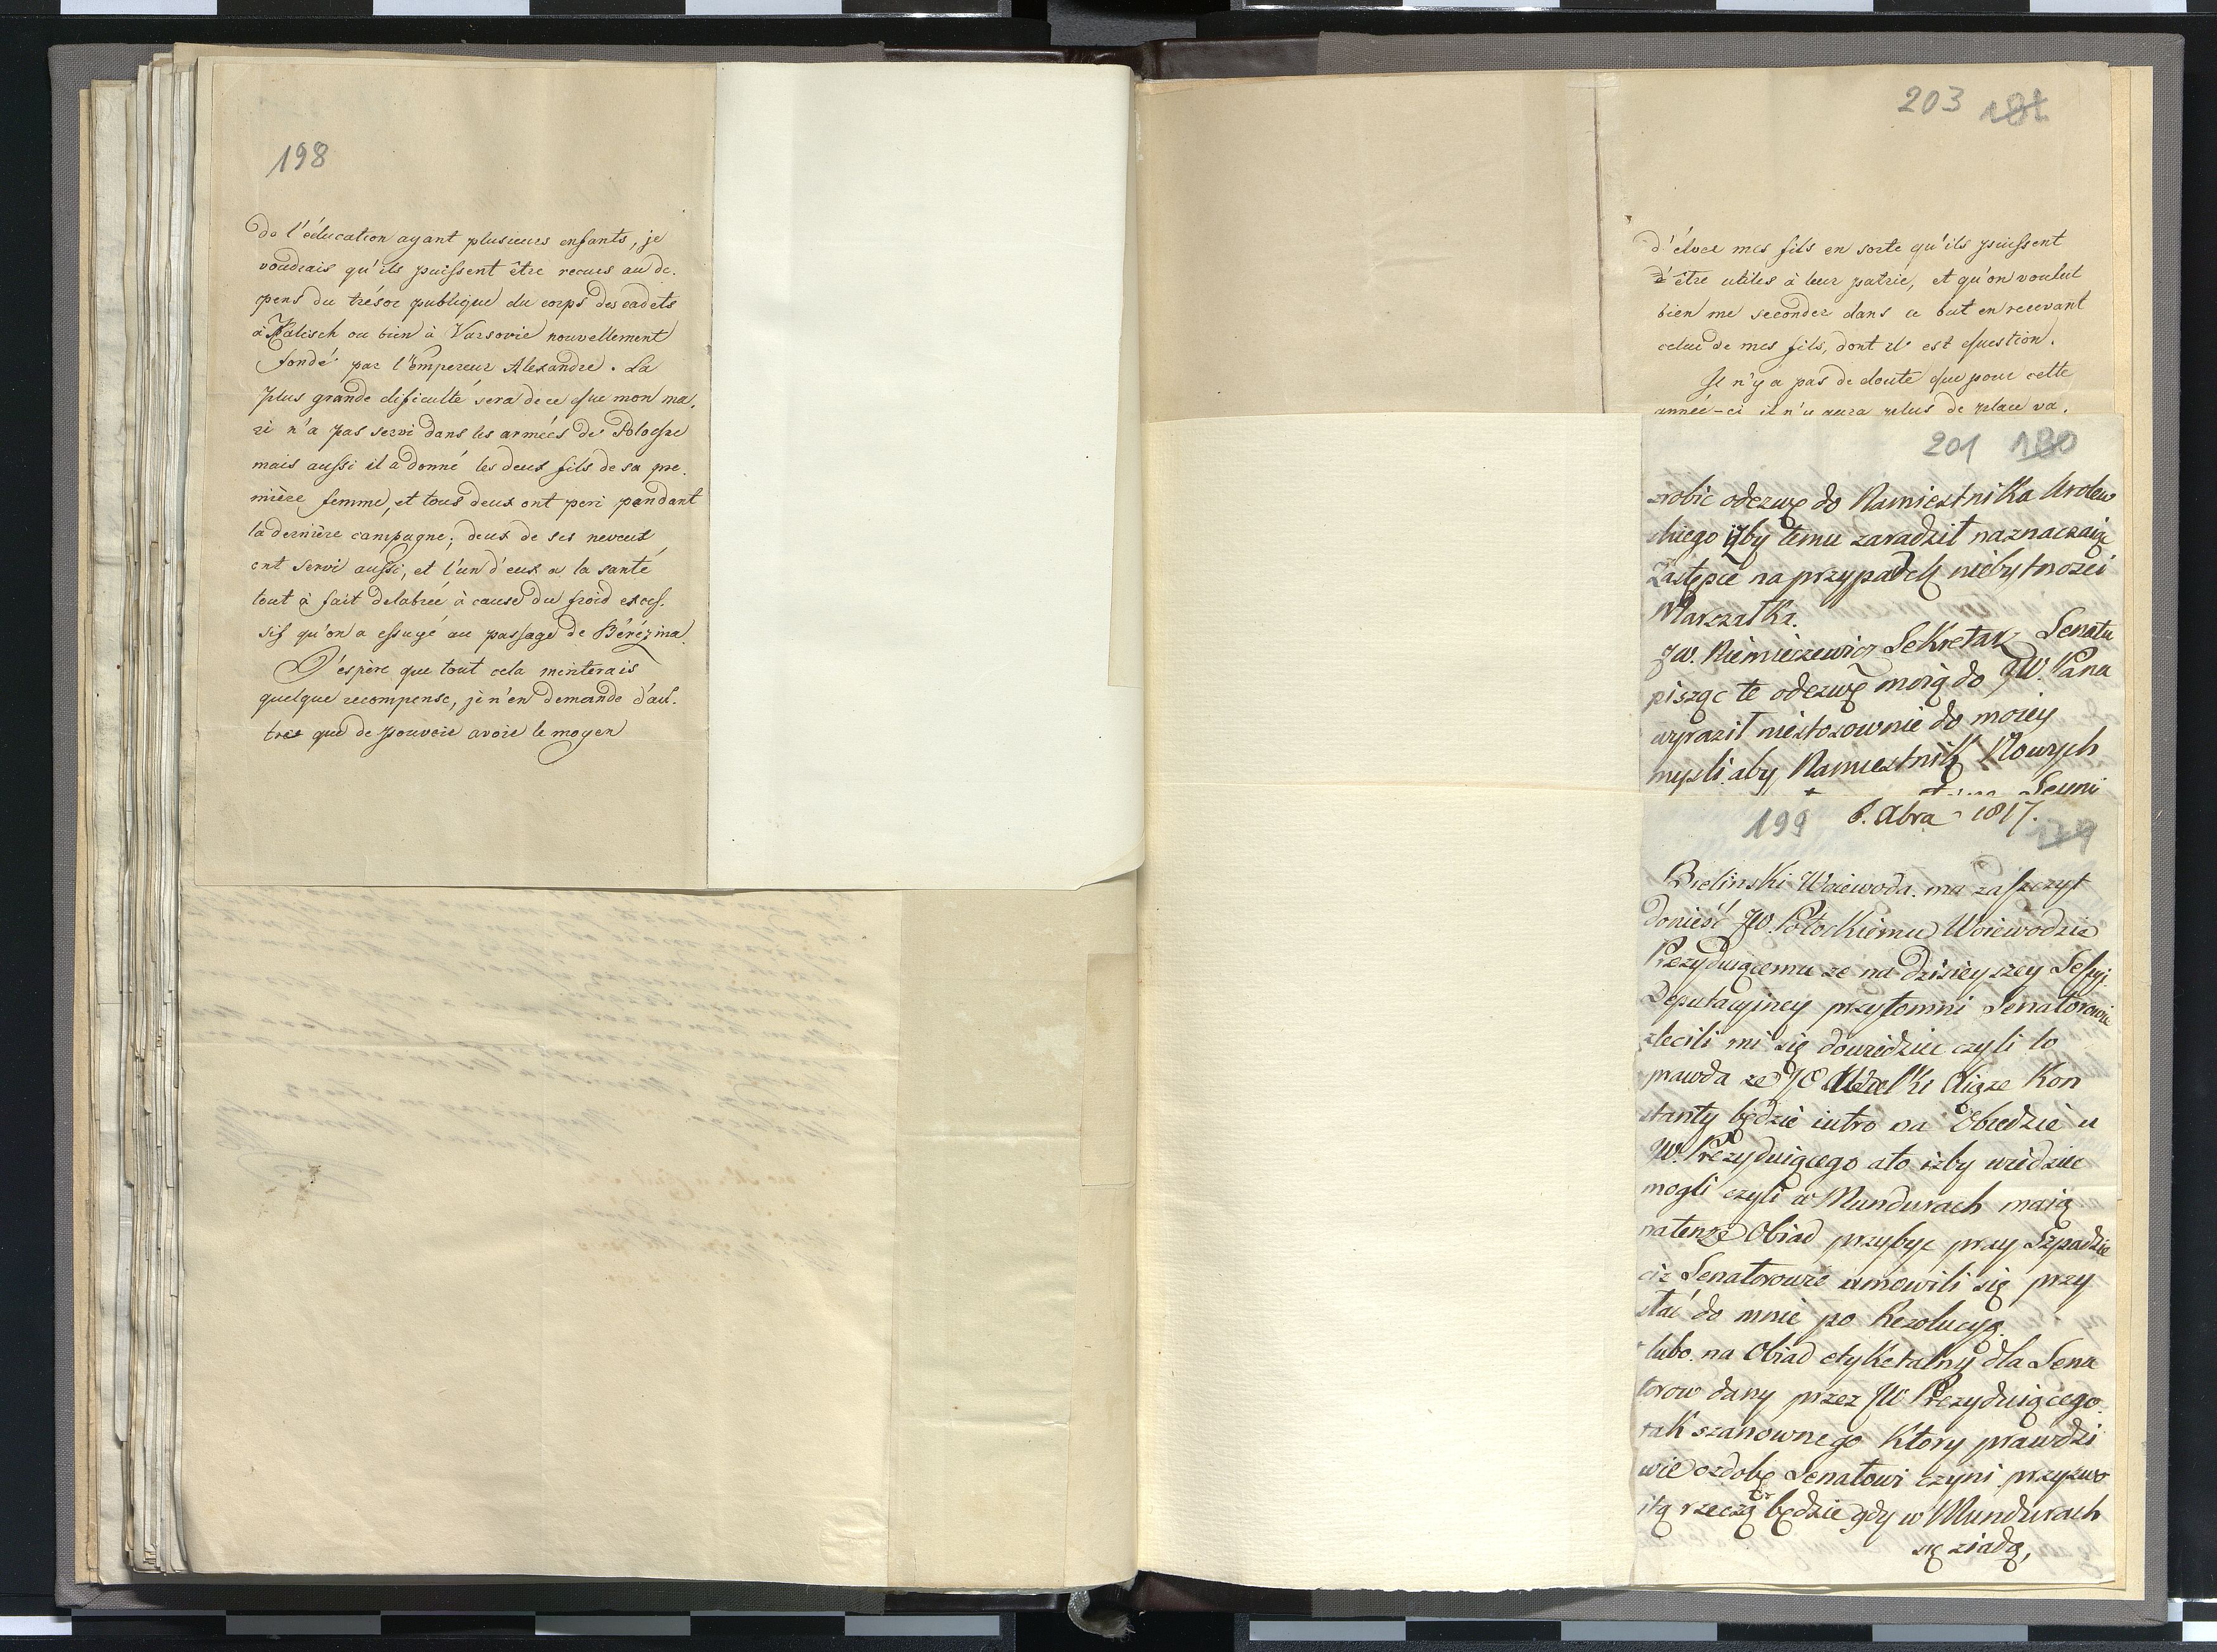 198
De l'éducation ayant plusieurs enfants, je
voudrais qu'ils puissent être recues au de-
pens du trésor publique du corps des cadets
à Kalisch ou bien à Varsovie nouvellement
fondé par l'Empereur Alexandre. La
plus grande dificulté sera de ce que mon ma-
ri n'a pas servi dans les armées de Pologne
mais aussi il a donné les deux fils de sa pre-
mière femme, et tous deux ont peri pendant
la dernière campagne; deux de ses neveux
ont servi aussi, et l'un d'eux a la santé
tout à fait delabrée à cause du froid exces-
sif qu'on a essuyé au passage de Bérézina.
J'espère que tout cela meriterais
quelque recompense, je n'en demande d'au-
tres que de pouvoir avoir le moyen
203 182
d'élver mes fils en sorte qu'ils puissent
d'être utiles à leur patrie, et qu'on voulut
bien me seconder dans ce but en recevant
celui de mes fils, dont il est question.
Il n'y a pas de doute que pour cette
année-ci il n'y aura plus de place va-
201 180
zrobic odezwę do Namiestnika Krolew
skiego iżby temu zaradził naznaczaiąc
Zastępcę na przypadek niebytnosci
Marszałka.
JW. Niemcewicz Sekretarz Senatu
pisząc te odezwę moią do JW. Pana
wyraził niestosownie do moiey
mysli aby Namiestnik Nowych
199 6. Xbra 1817. 179
Bielinski Woiewoda ma zaszczyt
donieść JW. Potockiemu Woiewodzie
Prezyduiącemu ze na dzisieyszey Sessyi
Deputacyiney przytomni Senatorowie
zlecili mi się dowiedziec czyli to
prawda ze JO Wielki Xiąze Kon
stanty będzie iutro na Obiedzie u
JW. Prezyduiącego ato izby wiedziec
mogli czyli w Mundurach maią
natenze Obiad przybyc przy Szpadzie
ciz Senatorowie umowili się przy
słać do mnie po Rezolucyą.
lubo na Obiad etykietalny dla Sena
torow dany przez JW Prezyduiącego
tak szanownego Ktory prawdzi
wie ozdobę Senatowi czyni przyzwo
itą rzeczą będzie gdy w Mundurach
się ziadą,